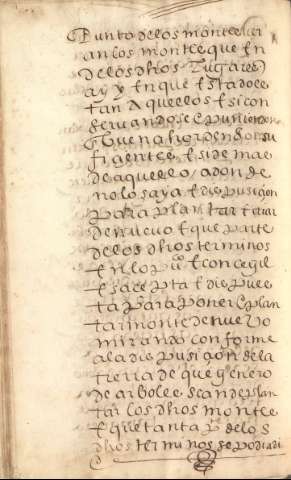 Punto de los montes ber
an los montes que en
de los dhos Lugares
ay y En que Estado es
tan Aquellos E si con
serbandose E puniendo en
Guena hordenbon su
figentes E si de mas
de aquello / adon de
no lo s aya E disposiçion
Para Plantar E criar
de nuevo E que parte
de los dhos terminos
En lo pu.co E conçegil
E sace pta E dispues
ta para poner E plan
tar monte de nuevo
mirando conforme
a la dispusiçion de la
tierra de que genero
de arboles se an de plan
tar los dhos montes
E que tanta p.te de los
dhos terminos se podra